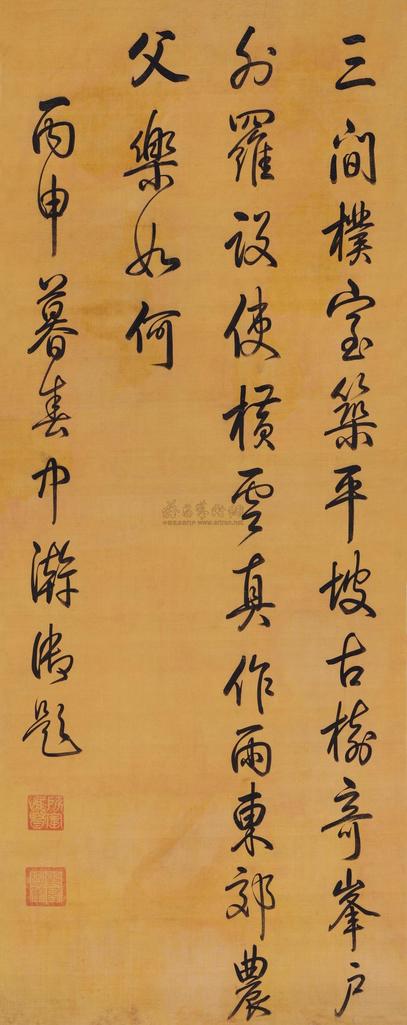 三間樸室築平坡古樹奇峯戶
外羅設使橫雲真作雨東郊農
父樂如何
丙申暮春中澣御題